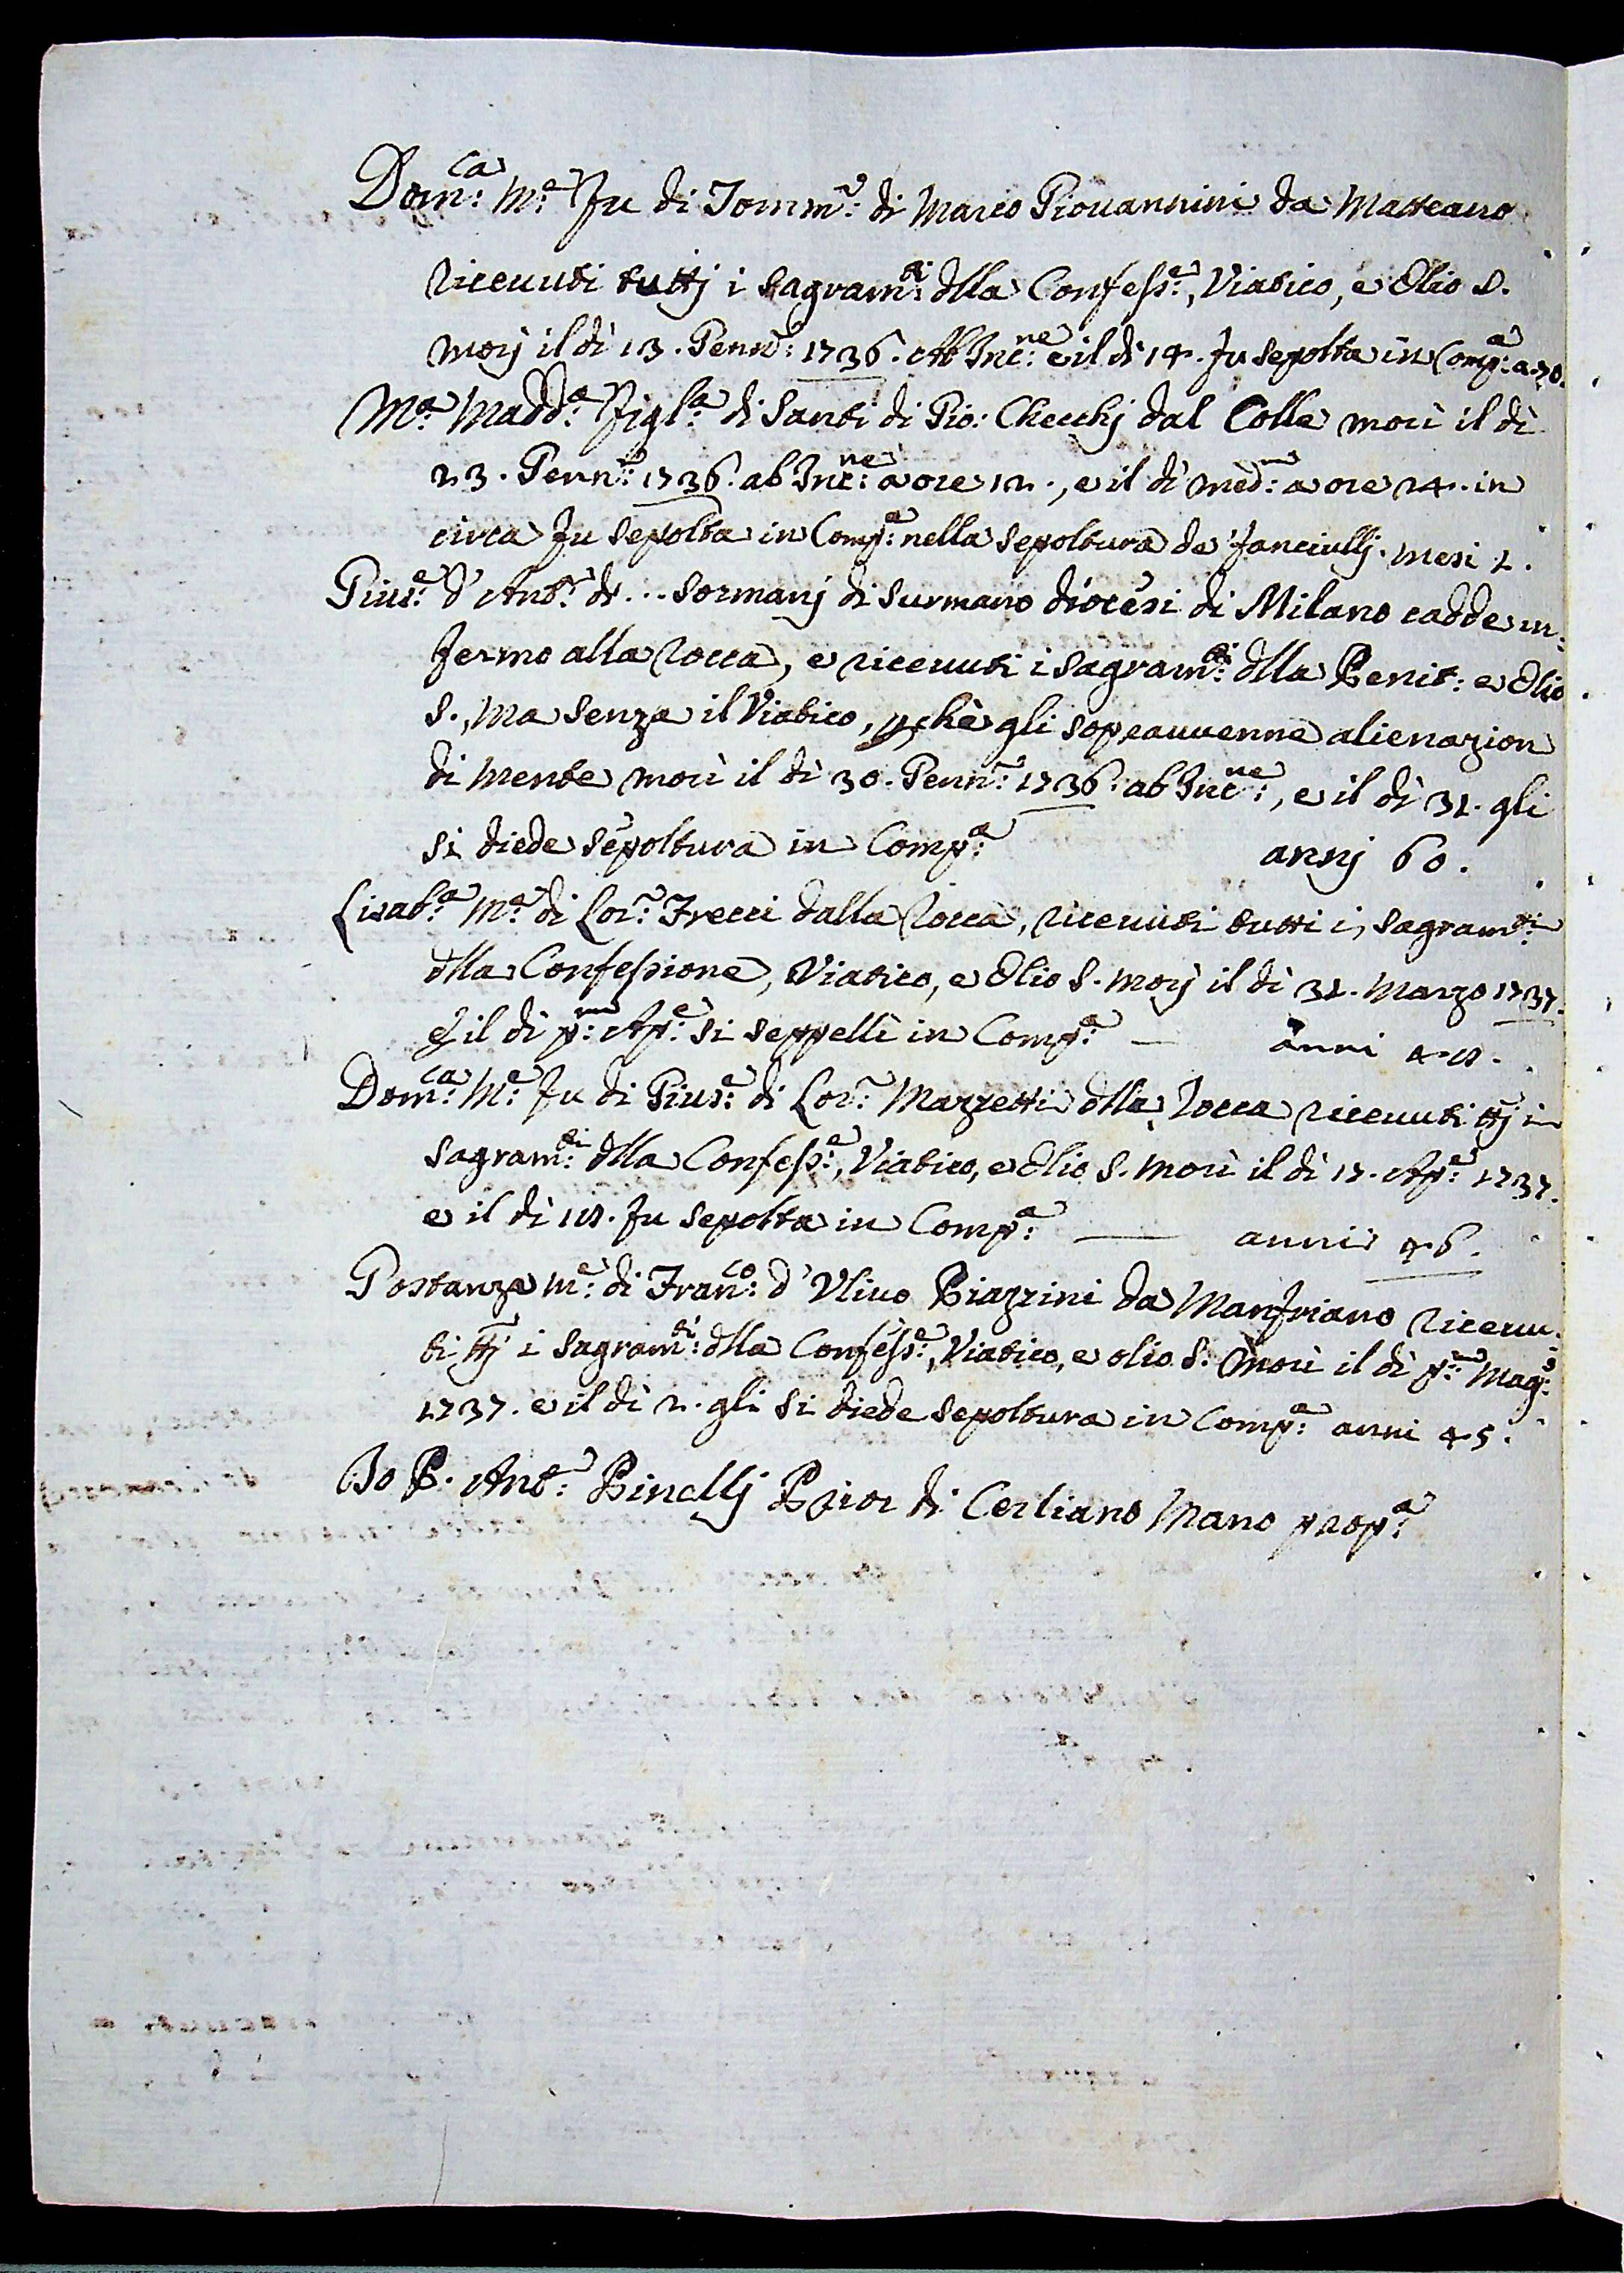 Dom:ca M:e fu di Tomm:o di Marco Giouannini da Matteano
riceuuti tuttj i sagram:ti dlla Confess:e, Viatico, e Olio S.
morj il dì 13. Genn:o 1736. Ab Inc:ne e il dì 14. fu sepolta in Comp:a a. 70.
M:a Madd:a figl:a di Santi di Gio: Checchj dal Colle morì il dì
23. Genn:o 1736. ab Inc:ne a ore 12., e il dì med:mo a ore 24. in
circa fu sepolta in Comp:a nella sepoltura de' fanciullj. mesi 2.
Gius:e d' Ant:o di ... Sormanj di Surmano diocesi di Milano cadde in:
fermo alla Rocca, e riceuuti i sagram:ti dlla Penit: e Olio
S., ma senza il Viatico, pchè gli soprauuenne alienazion
di mente morì il dì 30. Genn:o 1736. ab Inc:ne, e il dì 31. gli
si diede sepoltura in Comp:a annj 60.
Lisab:a M:e di Lor:o Frecci dalla Rocca, riceuuti tutti i sagram:ti
dlla Confessione, Viatico, e Olio S. morj il dì 31. Marzo 1737.
E il dì p:mo Ap:e si seppellì in Comp:a — anni 48.
Dom:ca M:e fu di Gius:e di Lor:o Mazzetti dlla Rocca riceuuti ttj i
sagram:ti dlla Confess:e, Viatico, e Olio S. morì il dì 17. Ap:e 1737.
e il dì 18. fu sepolta in Comp:a — anni 46.
Gostanza M:e di Fran:co d' Vliuo Piazzini da Manfriano riceuu:
ti ttj i sagram:ti dlla Confess:e, Viatico, e olio S. morì il dì p:mo Mag:o
1737. e il dì 2. gli si diede sepoltura in Comp:a anni 45.
Io P. Ant:o Pinellj Prior di Cerliano Mano prop:a